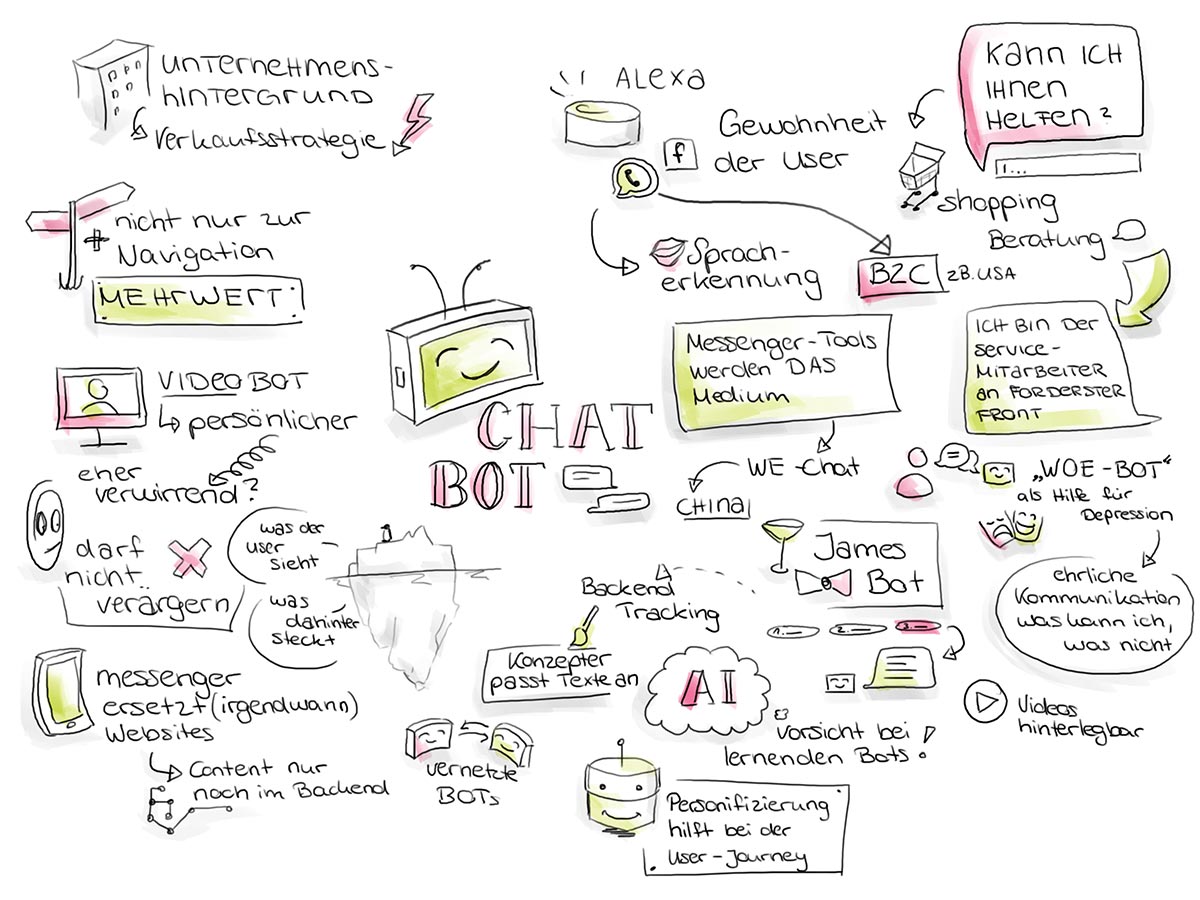 UNTERNEHMENS-
HINTERGRUND
Verkaufsstrategie
nicht nur zur
+ Navigation
MEHRWERT
VIDEOBOT
persönlicher
eher
verwirrend?
darf
nicht..
verärgern
was der
user
sieht
was
dahinter
steckt
messenger
ersetzt (irgendwann)
Websites
Content nur
noch im Backend
CHAT
BOT
vernetzte
BOTs
ALEXA
f
Gewohnheit
der User
Sprach-
erkennung
B2C
zB. USA
KANN ICH
IHNEN
HELFEN?
I...
shopping
Beratung
Messenger-Tools
werden DAS
Medium
WE-Chat
CHINA
ICH BIN DER
SERVICE-
MITARBEITER
an FORDERSTER
FRONT
„WOE-BOT“
als Hilfe für
Depression
ehrliche
Kommunikation
was kann ich,
was nicht
James
Bot
1.
2.
3.
Backend
Tracking
Konzepter
passt Texte an
AI
Vorsicht bei
lernenden Bots!
Videos
hinterlegbar
Personifizierung
hilft bei der
User-Journey